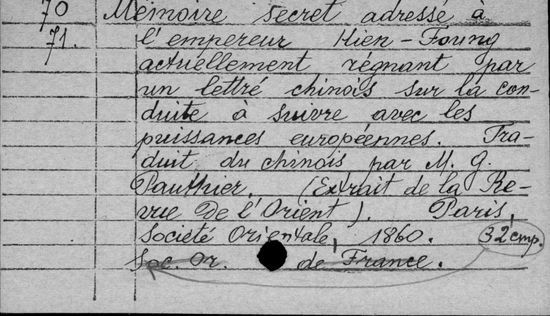 70 Mémoire secret adressé à
71. l'empereur Hien-Foung
actuellement régnant par
un lettré chinois sur la con-
duite à suivre avec les
puissances européennes. Tra-
duit du chinois par M. G.
Pauthier. (Extrait de la Re-
vue de l'Orient). Paris,
Société Orientale, 1860. 32 стр.
Soc. Or. de France.